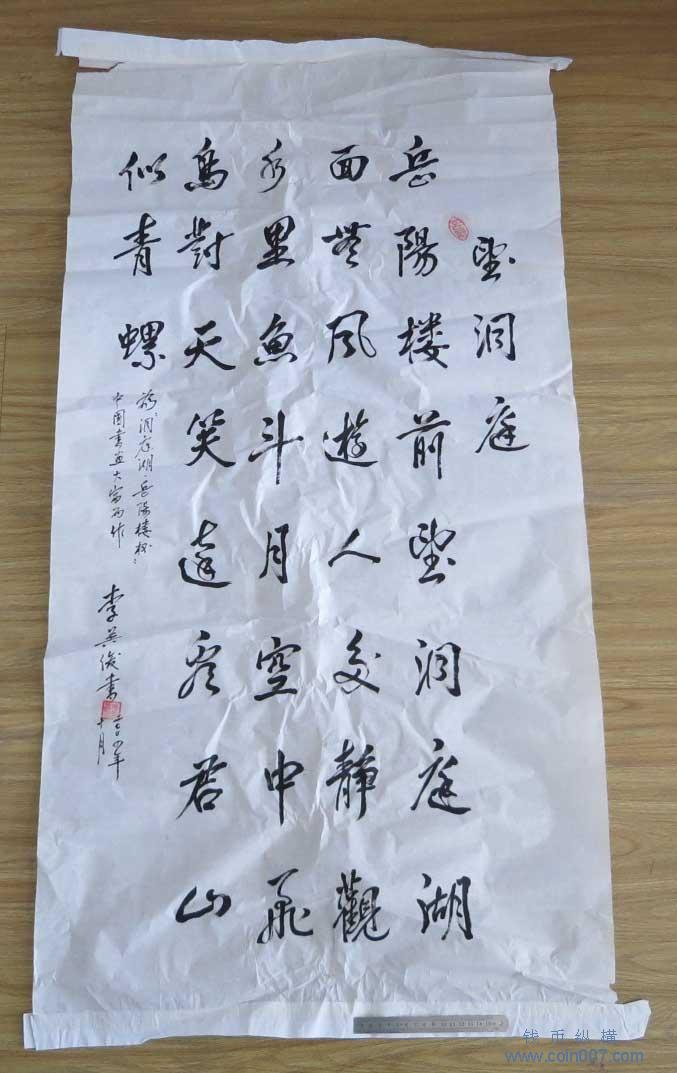 望洞庭
岳陽楼前望洞庭湖
面無风遊人多静觀
水里魚斗月空中飛
鳥對天笑遠看君山
似青螺
為“洞庭湖·岳陽楼杯”
中国書画大赛而作
李英俊書
二00四年
十月
钱币纵横
www.coin007.com